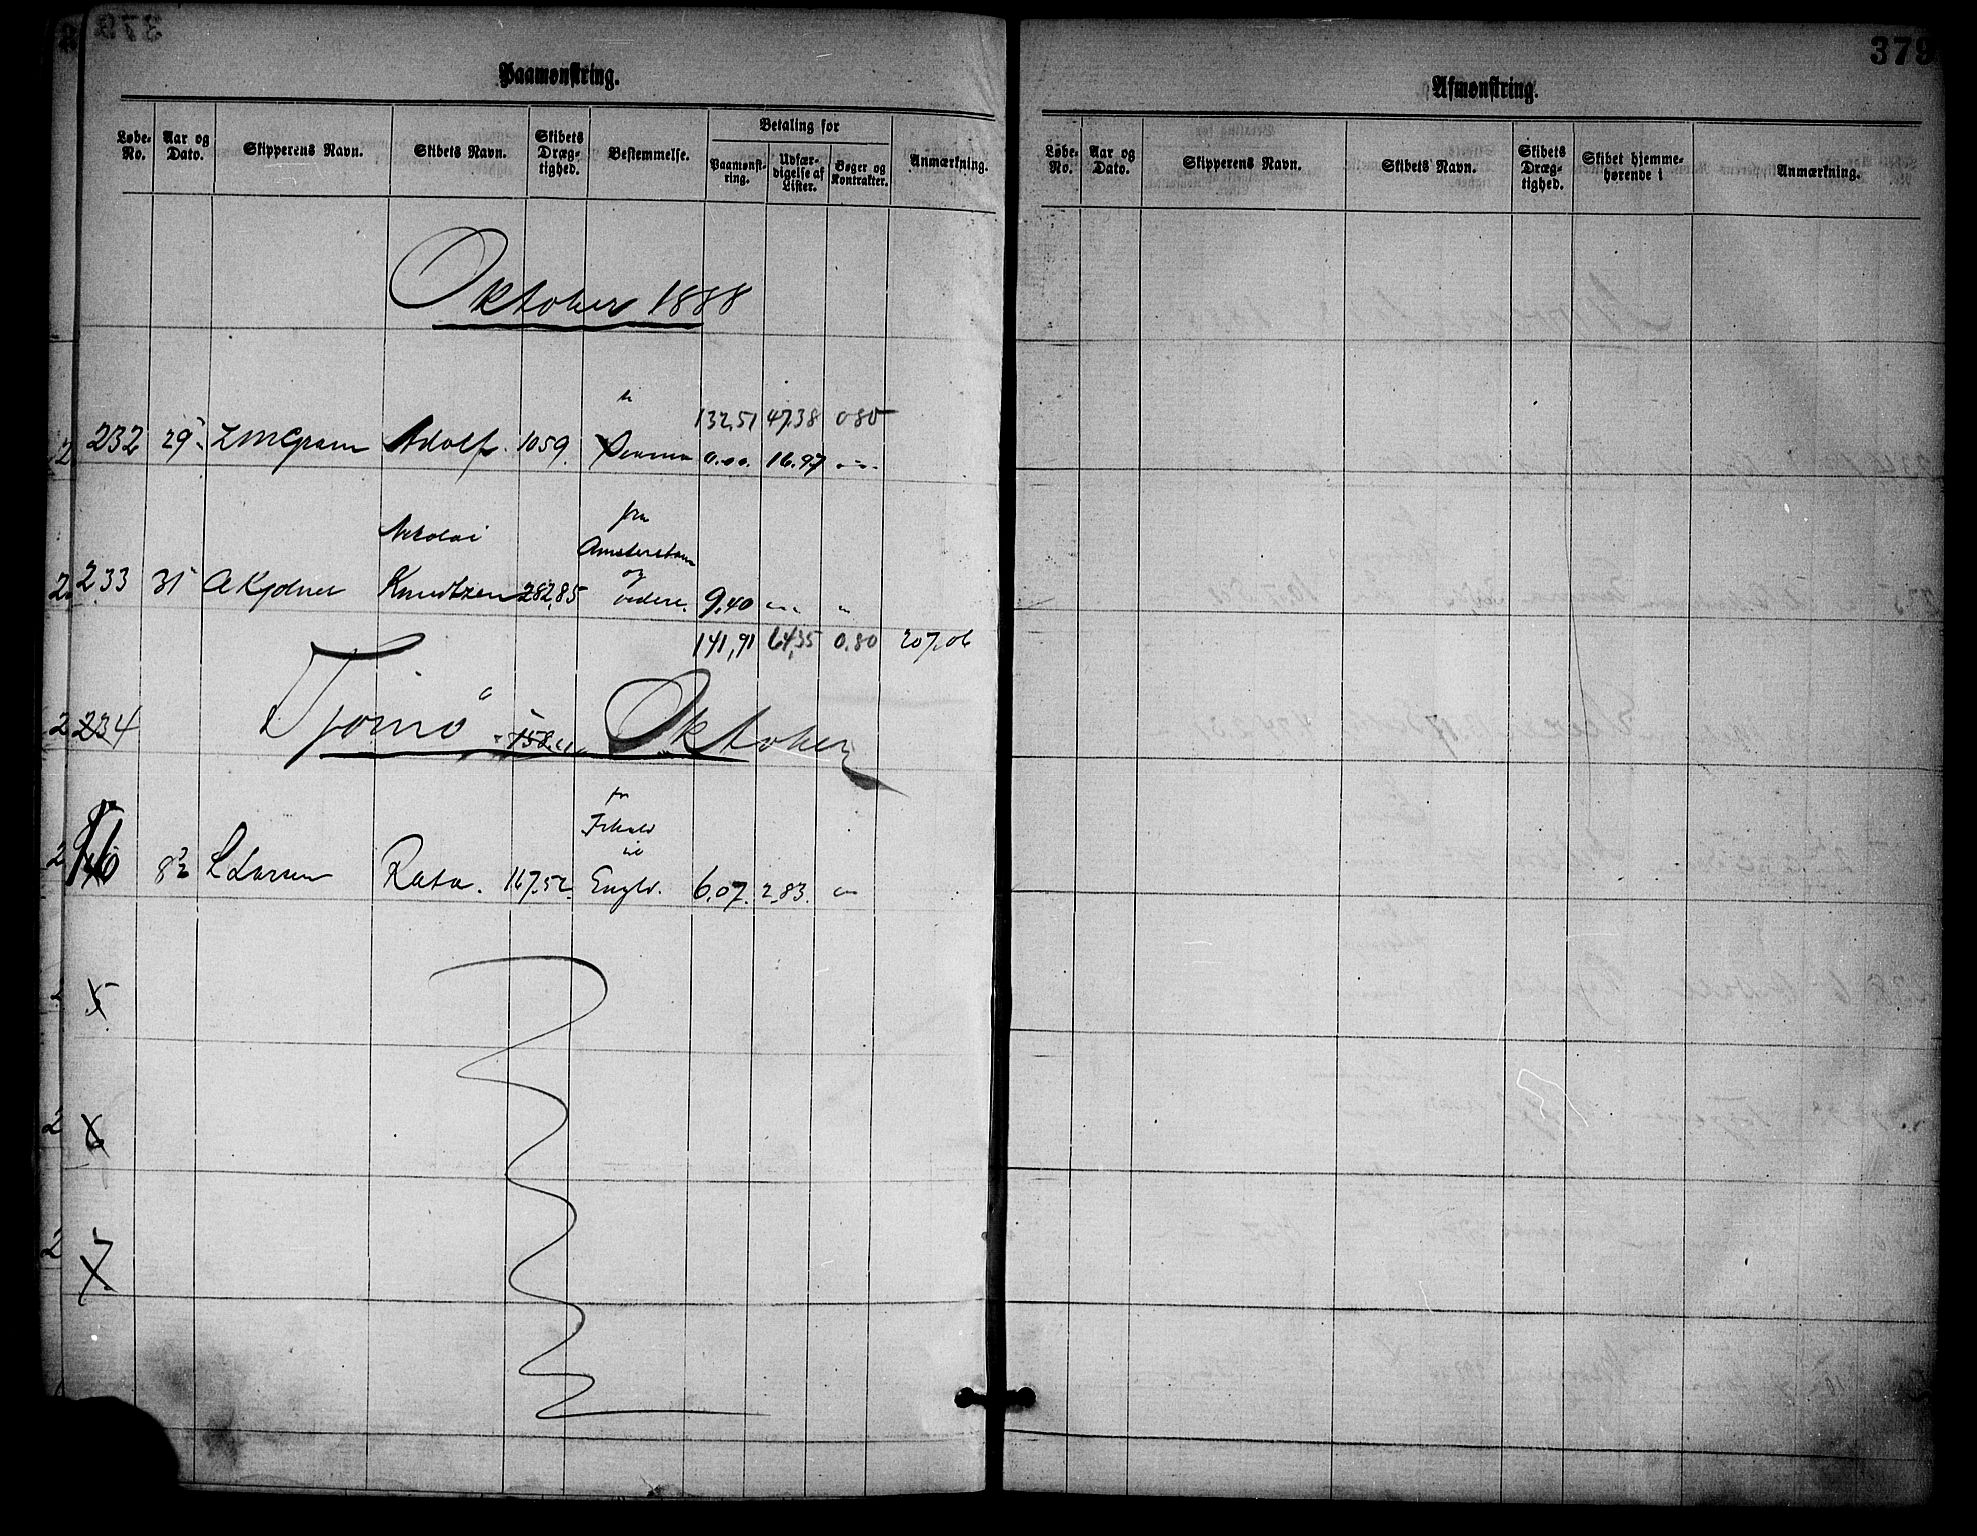 379
Paamønstring.
Løbe-No. Aar og Dato. Skipperens Navn. Skibets Navn. Skibets Dræg-tighed. Bestemmelse. Betaling for Paamønst-ring. Udfær-digelse af Lister. Bøger og Kontrakter. Anmærkning.
Oktober 1888
132,51 47,38 0 80
232 29 Adolf. 1059. 0.00. 16.97
Nikolai fra
Amsterdam
og
233 31 Knudtzen 282,85 videre. 9,40
141,91 64,35 0.80 207,06
234 Tjømø Oktober
16 8 L Larsen Rata. 167.52 Engld. 6.07. 2,83.
5
6
7
Afmønstring.
Løbe-No. Aar og Dato. Skipperens Navn. Skibets Navn. Skibets Dræg-tighed. Skibet hjemme-hørende i Anmærkning.